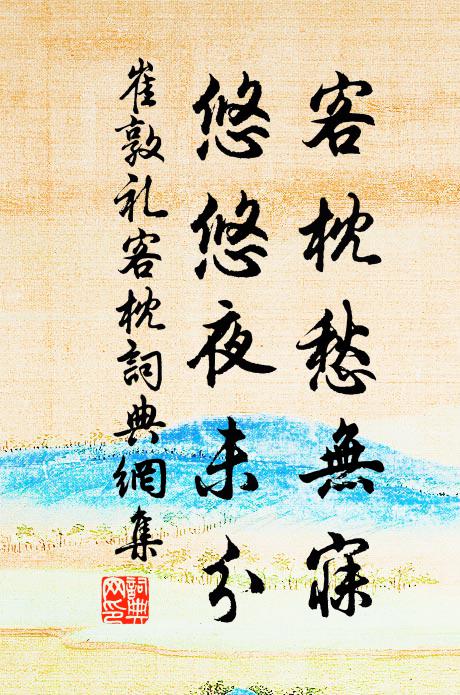 客枕愁無寐
悠悠夜未分
崔敦礼客枕詞典網集
詞典